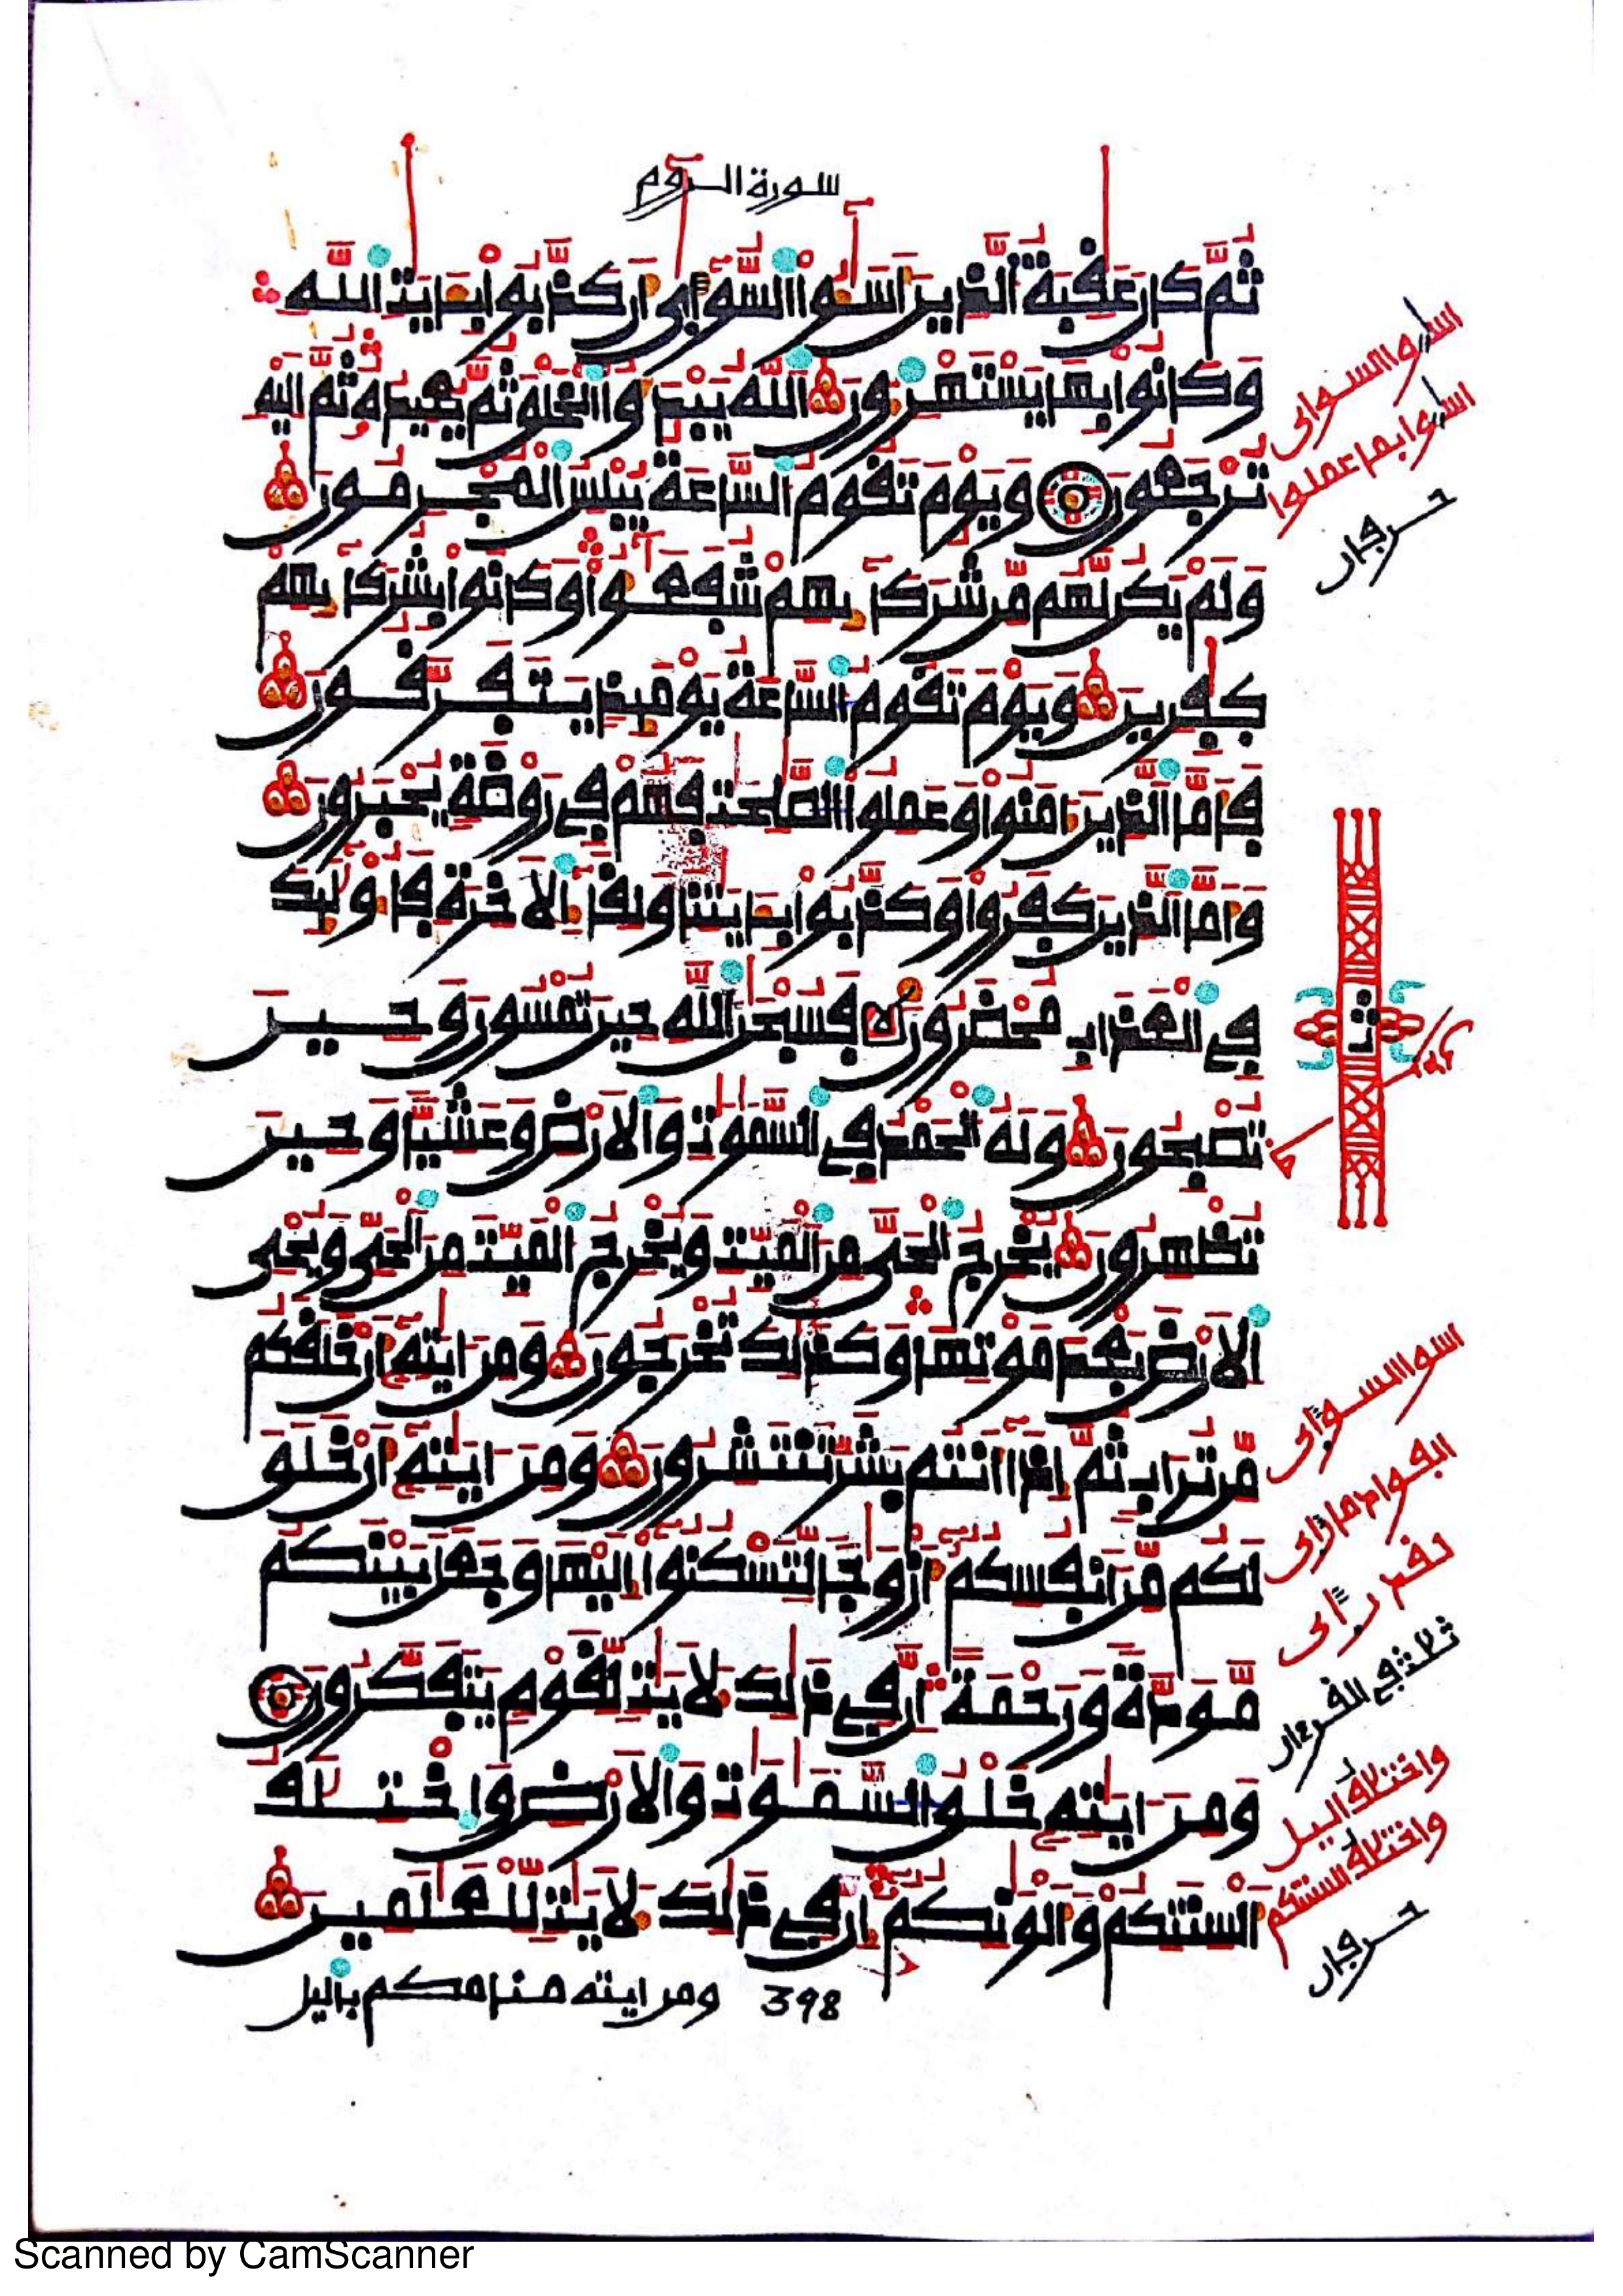 سورة الروم
ثُمَّ كَانَ عَٰقِبَةُ الَّذِينَ أَسَٰٓـُٔوا۟ السُّوٓأَىٰٓ أَن كَذَّبُوا۟ بِـَٔايَٰتِ اللَّهِ
وَكَانُوا۟ بِهَا يَسْتَهْزِءُونَ اللَّهُ يَبْدَؤُا۟ الْخَلْقَ ثُمَّ يُعِيدُهُۥ ثُمَّ إِلَيْهِ
تُرْجَعُونَ وَيَوْمَ تَقُومُ السَّاعَةُ يُبْلِسُ الْمُجْرِمُونَ
وَلَمْ يَكُن لَّهُم مِّن شُرَكَائِهِمْ شُفَعَٰٓؤُا۟ وَكَانُوا۟ بِشُرَكَائِهِمْ
كَٰفِرِينَ وَيَوْمَ تَقُومُ السَّاعَةُ يَوْمَئِذٍ يَتَفَرَّقُونَ
فَأَمَّا الَّذِينَ ءَامَنُوا۟ وَعَمِلُوا۟ الصَّٰلِحَٰتِ فَهُمْ فِى رَوْضَةٍ يُحْبَرُونَ
وَأَمَّا الَّذِينَ كَفَرُوا۟ وَكَذَّبُوا۟ بِـَٔايَٰتِنَا وَلِقَآئِ الَاخِرَةِ فَأُو۟لَٰٓئِكَ
فِى الْعَذَابِ مُحْضَرُونَ فَسُبْحَٰنَ اللَّهِ حِينَ تُمْسُونَ وَحِينَ
تُصْبِحُونَ وَلَهُ الْحَمْدُ فِى السَّمَٰوَٰتِ وَالَارْضِ وَعَشِيًّا وَحِينَ
تُظْهِرُونَ يُخْرِجُ الْحَىَّ مِنَ الْمَيِّتِ وَيُخْرِجُ الْمَيِّتَ مِنَ الْحَىِّ وَيُحْىِ
الَارْضَ بَعْدَ مَوْتِهَا وَكَذَٰلِكَ تُخْرَجُونَ وَمِنَ ايَٰتِهِۦٓ أَنْ خَلَقَكُم
مِّن تُرَابٍ ثُمَّ إِذَا أَنتُم بَشَرٌ تَنتَشِرُونَ وَمِنَ ايَٰتِهِۦٓ أَنْ خَلَقَ
لَكُم مِّنَ انفُسِكُمُۥٓ أَزْوَٰجًا لِّتَسْكُنُوٓا۟ إِلَيْهَا وَجَعَلَ بَيْنَكُم
مَّوَدَّةً وَرَحْمَةً إِنَّ فِى ذَٰلِكَ لَأَيَٰتٍ لِّقَوْمٍ يَتَفَكَّرُونَ
وَمِنَ ايَٰتِهِۦ خَلْقُ السَّمَٰوَٰتِ وَالَارْضِ وَاخْتِلَٰفُ
أَلْسِنَتِكُمْ وَأَلْوَٰنِكُمُۥٓ إِنَّ فِى ذَٰلِكَ لَأَيَٰتٍ لِّلْعَٰلَمِينَ
398 ومن ايته منامكم باليل
اسوا السواى
اسوا بما عملوا
حرفان
ثمن
اسوا السواى
الفواد ما راى
لقد راى
ثلاث في القرءان
واختلاف اليل
واختلاف السنتكم
حرفان
Scanned by CamScanner